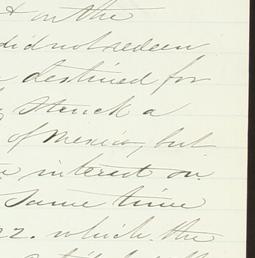 & on the
did not redeem
destined for
struck a
of Mexico, but
interest on
same time
22. which the